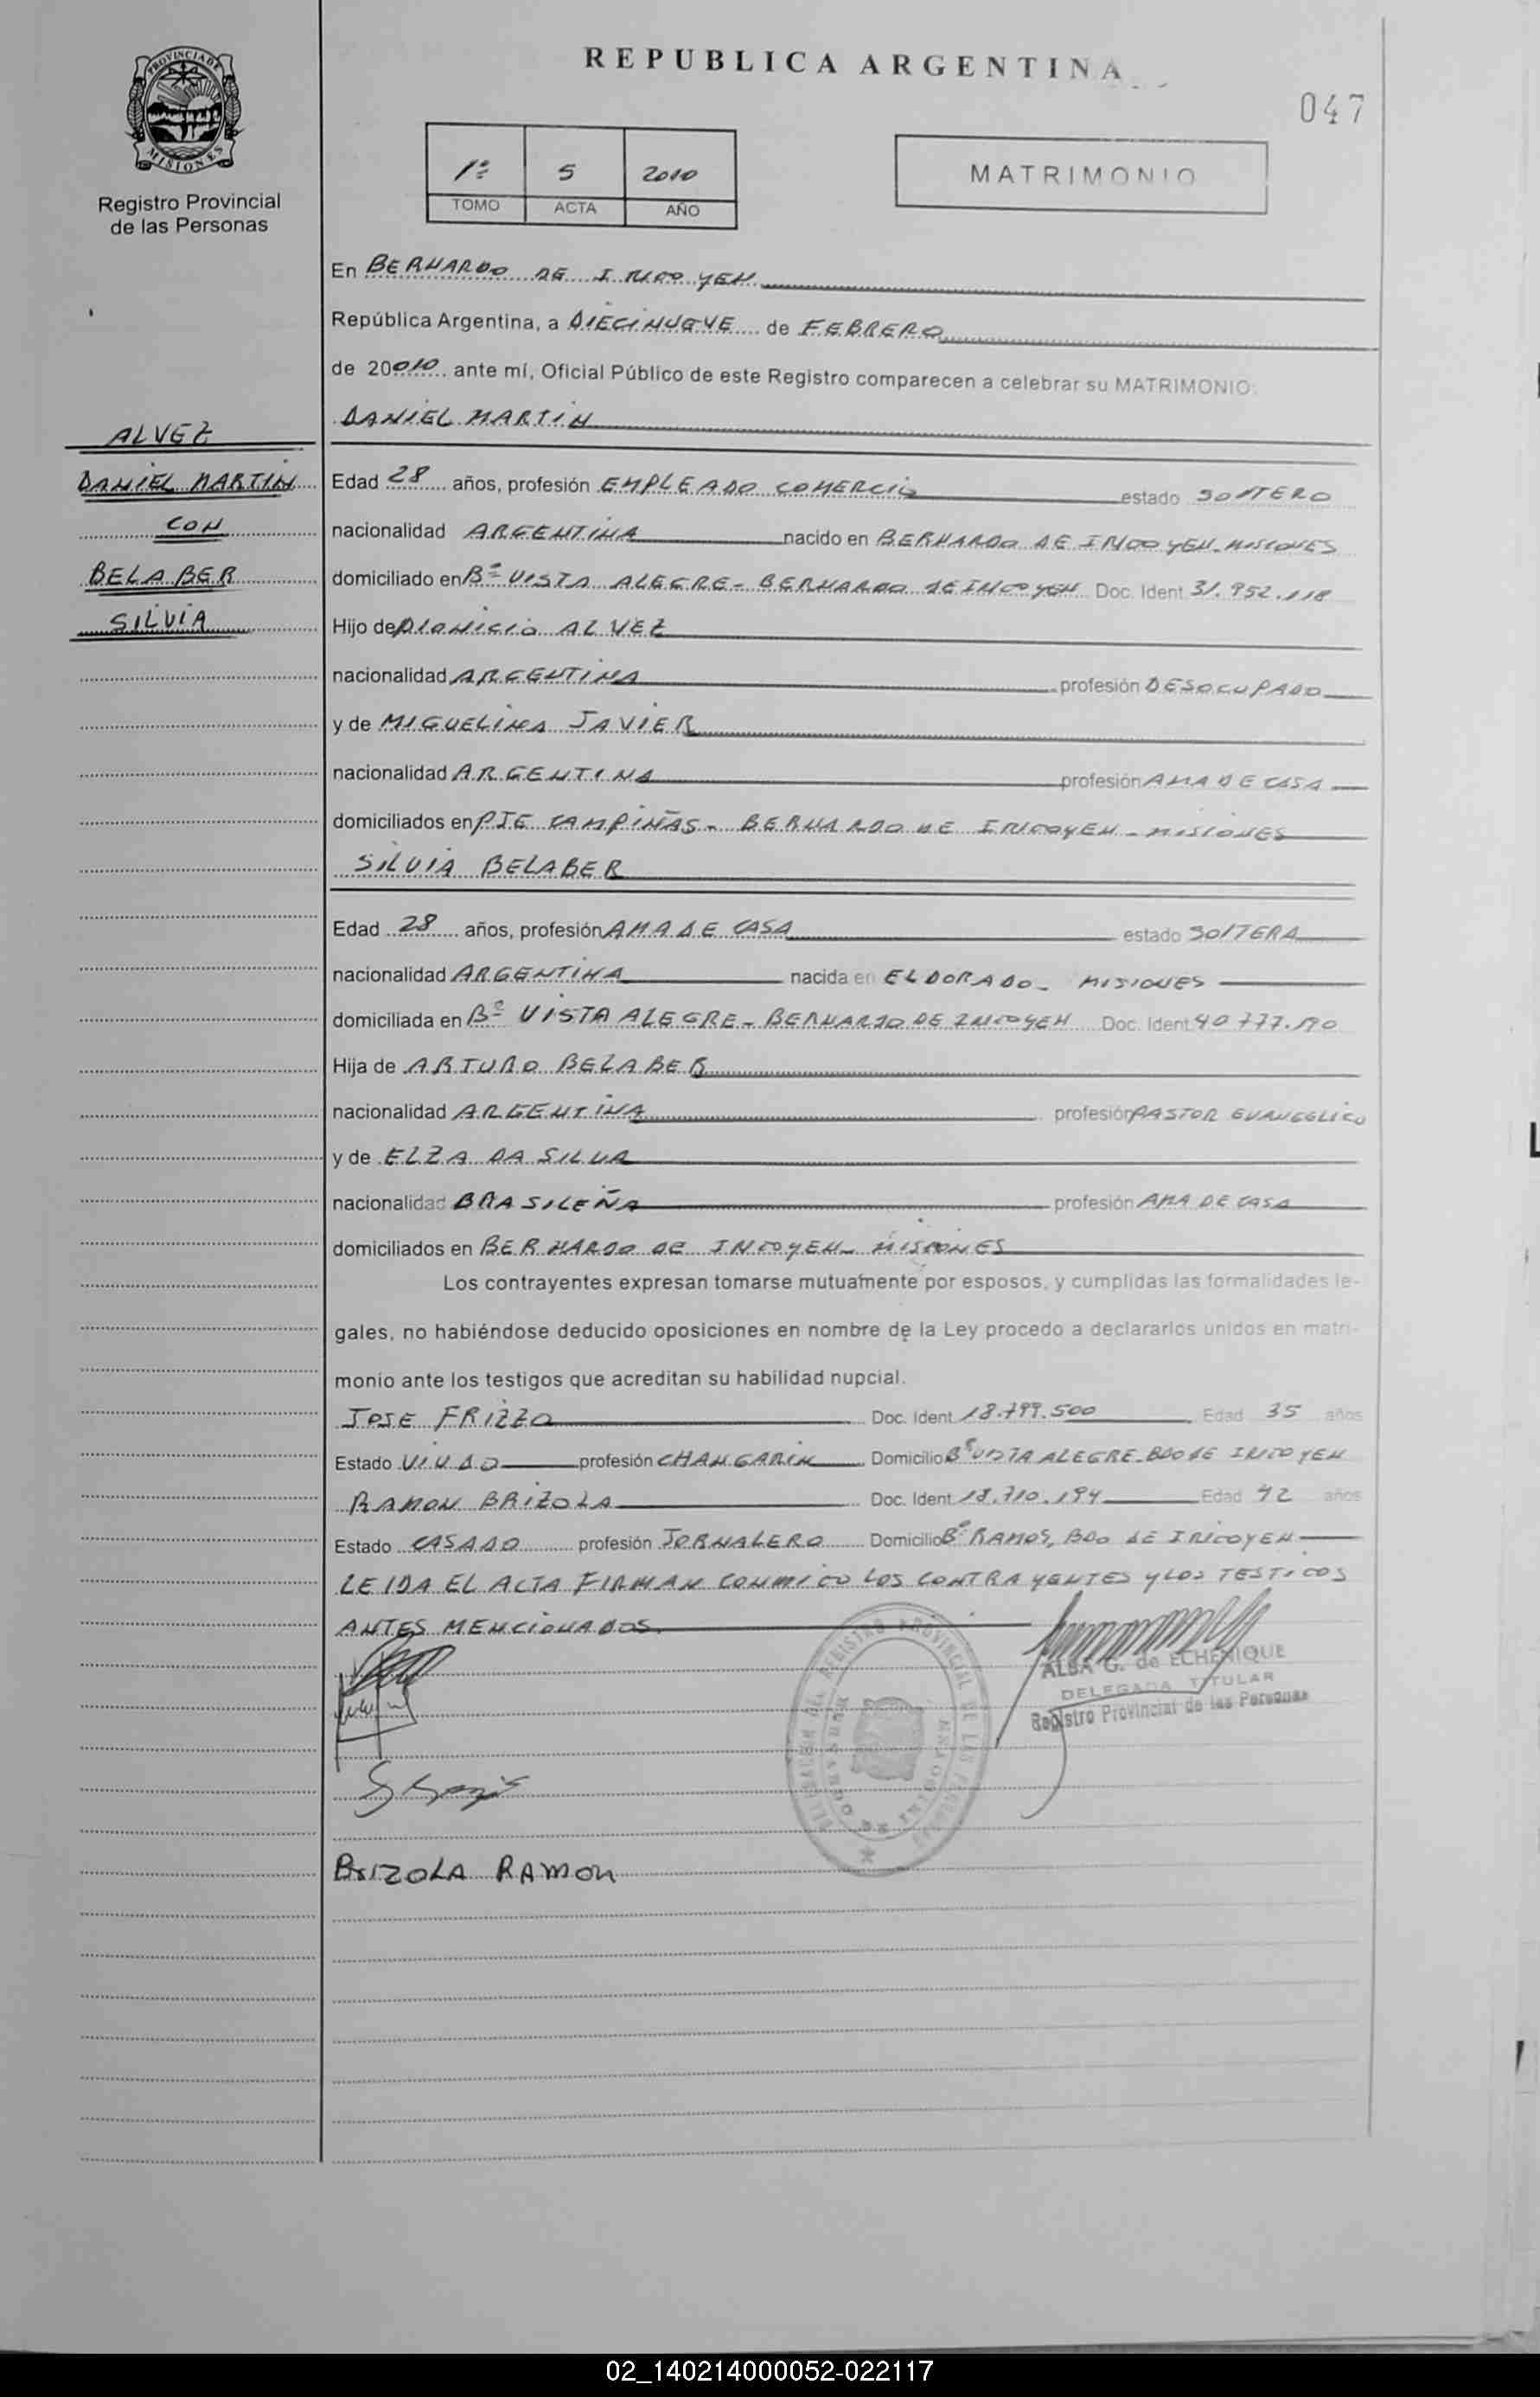 REPUBLICA ARGENTINA
047
PROVINCIA DE MISIONES
Registro Provincial
de las Personas
1º 5 2010
TOMO ACTA AÑO
MATRIMONIO
En BERNARDO DE IRIGOYEN
República Argentina, a DIECINUEVE de FEBRERO
de 20010 ante mí, Oficial Público de este Registro comparecen a celebrar su MATRIMONIO:
DANIEL MARTIN
ALVEZ
DANIEL MARTIN
CON
BELABER
SILVIA
Edad 28 años, profesión EMPLEADO COMERCIO estado SOLTERO
nacionalidad ARGENTINA nacido en BERNARDO DE IRIGOYEN-MISIONES
domiciliado en Bº VISTA ALEGRE - BERNARDO DE IRIGOYEN Doc. Ident 31.952.118
Hijo de DIONICIO ALVEZ
nacionalidad ARGENTINA profesión DESOCUPADO
y de MIGUELINA JAVIER
nacionalidad ARGENTINA profesión AMA DE CASA
domiciliados en PJE CAMPIÑAS - BERNARDO DE IRIGOYEN - MISIONES
SILVIA BELABER
Edad 28 años, profesión AMA DE CASA estado SOLTERA
nacionalidad ARGENTINA nacida en ELDORADO - MISIONES
domiciliada en Bº VISTA ALEGRE - BERNARDO DE IRIGOYEN Doc. Ident 40.777.190
Hija de ARTURO BELABER
nacionalidad ARGENTINA profesión PASTOR EVANGELICO
y de ELZA DA SILVA
nacionalidad BRASILEÑA profesión AMA DE CASA
domiciliados en BERNARDO DE IRIGOYEN - MISIONES
Los contrayentes expresan tomarse mutuamente por esposos, y cumplidas las formalidades le-
gales, no habiéndose deducido oposiciones en nombre de la Ley procedo a declararlos unidos en matri-
monio ante los testigos que acreditan su habilidad nupcial.
JOSE FRIZZO Doc. Ident 18.799.500 Edad 35 años
Estado VIUDO profesión CHANGARIN Domicilio Bº VISTA ALEGRE-BDO DE IRIGOYEN
RAMON BRIZOLA Doc. Ident 18.710.194 Edad 42 años
Estado CASADO profesión JORNALERO Domicilio Bº RAMOS, BDO DE IRIGOYEN
LEIDA EL ACTA FIRMAN CONMIGO LOS CONTRAYENTES Y LOS TESTIGOS
ANTES MENCIONADOS.
ALBA G. de ECHENIQUE
DELEGADA TITULAR
Registro Provincial de las Personas
BRIZOLA RAMON
02_140214000052-022117